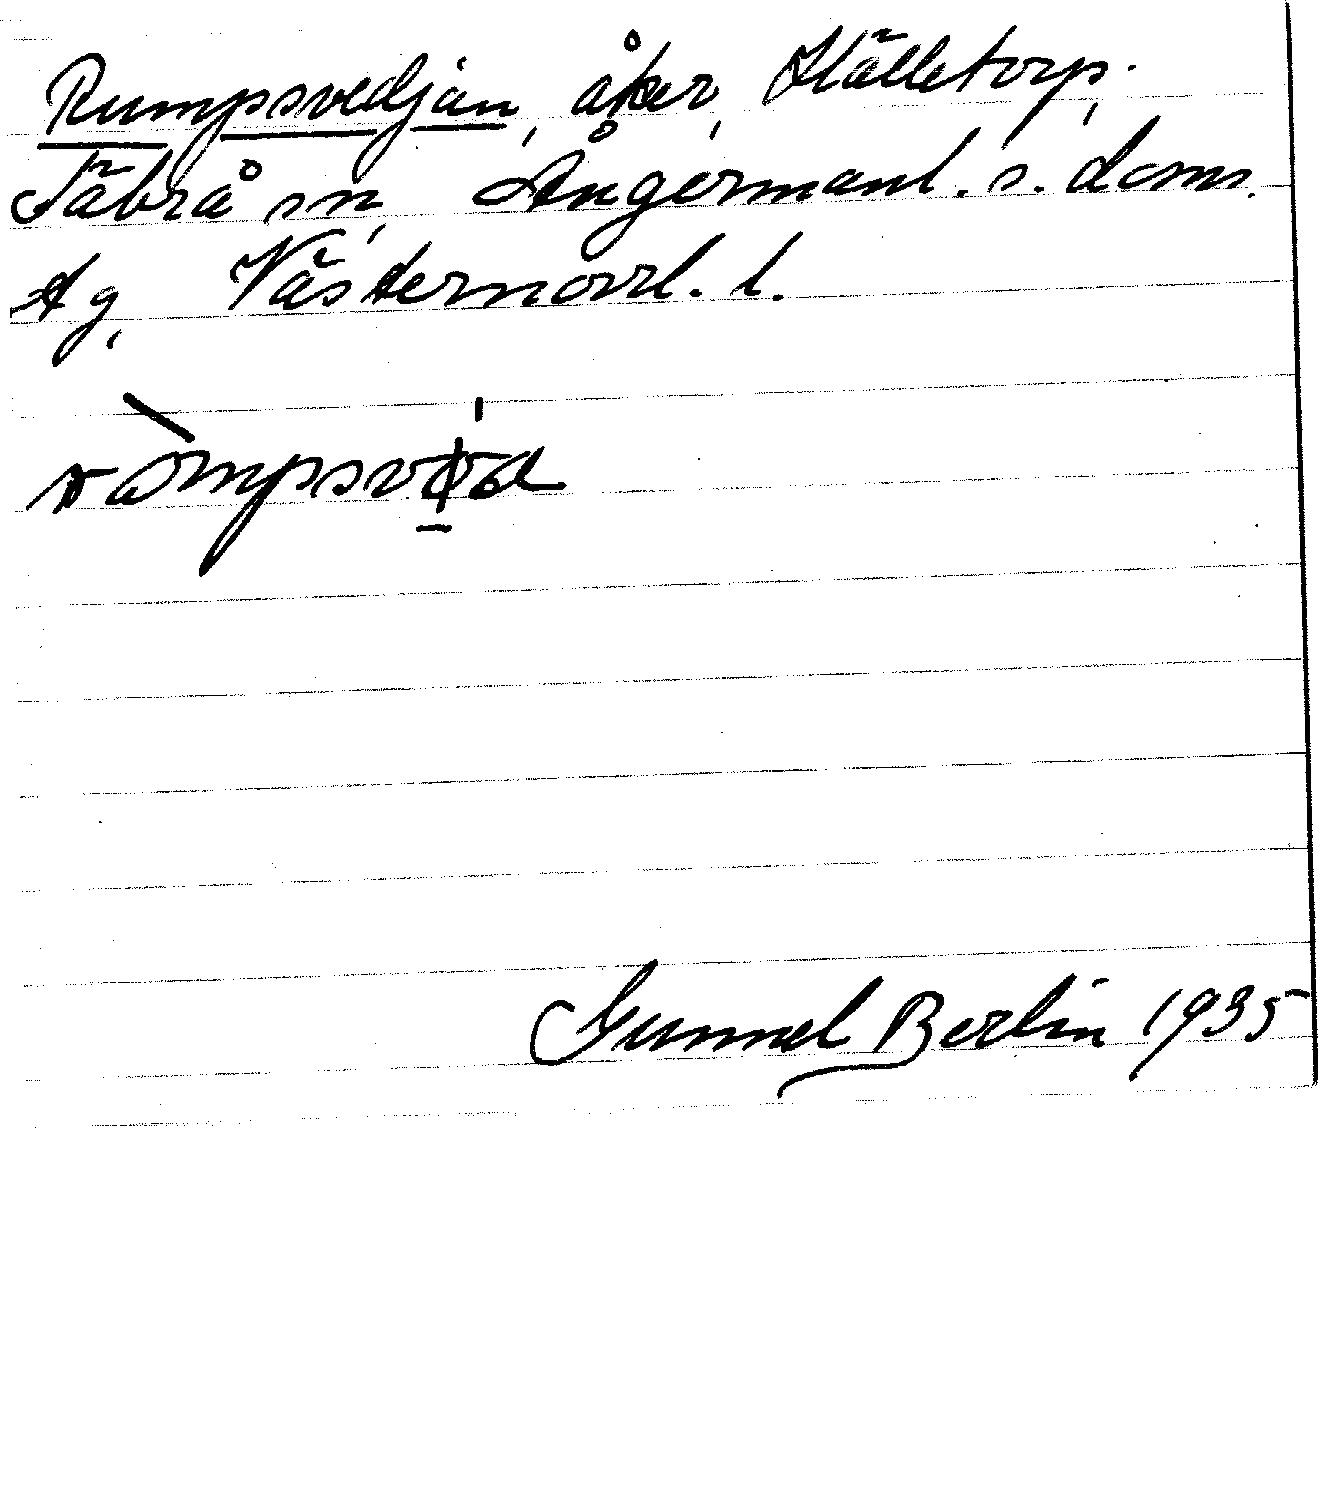 Rumpsvedjan, åker, Hälletorp,
Säbrå sn, Ångermanl. s. doms.
tg, Västernorrl. l.
Gunnel Berlin 1935